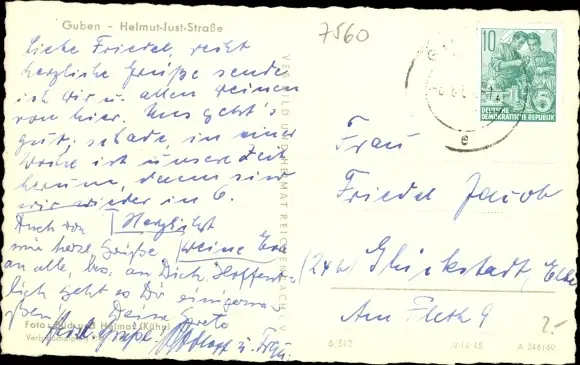 Guben - Helmut-Just-Straße
7560
Liebe Friedel, recht
herzliche Grüße sende
ich Dir u. allen Deinen
von hier. Uns geht's
gut, schade, in einer
Woche ist unsere Zeit
herum, dann sind
wir wieder in G.
Herzlichst
Deine Eva
Auch von
mir herzl. Grüße
an alle, bes. an Dich. Hoffent-
lich geht es Dir einigerma-
ßen. Deine Greto
u. Frau
10
DEUTSCHE
DEMOKRATISCHE REPUBLIK
Frau
Friedel Jacob
(24b) Glückstadt, Elbe
Am Fleth 9
2.-
VERLAG BILD UND HEIMAT REICHENBACH I. V.
Foto: Bild und Heimat (Kühn)
6/512
A 246/60